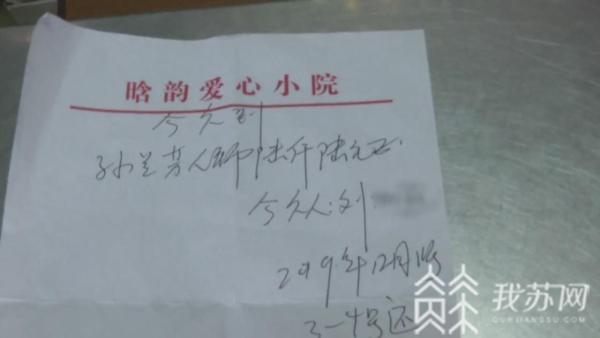 晗韵爱心小院
今欠到
孙兰芳人民币陆仟陆元正.
今欠人:刘
2019年12月
3-4号还
我苏网
OURJIANGSU.COM